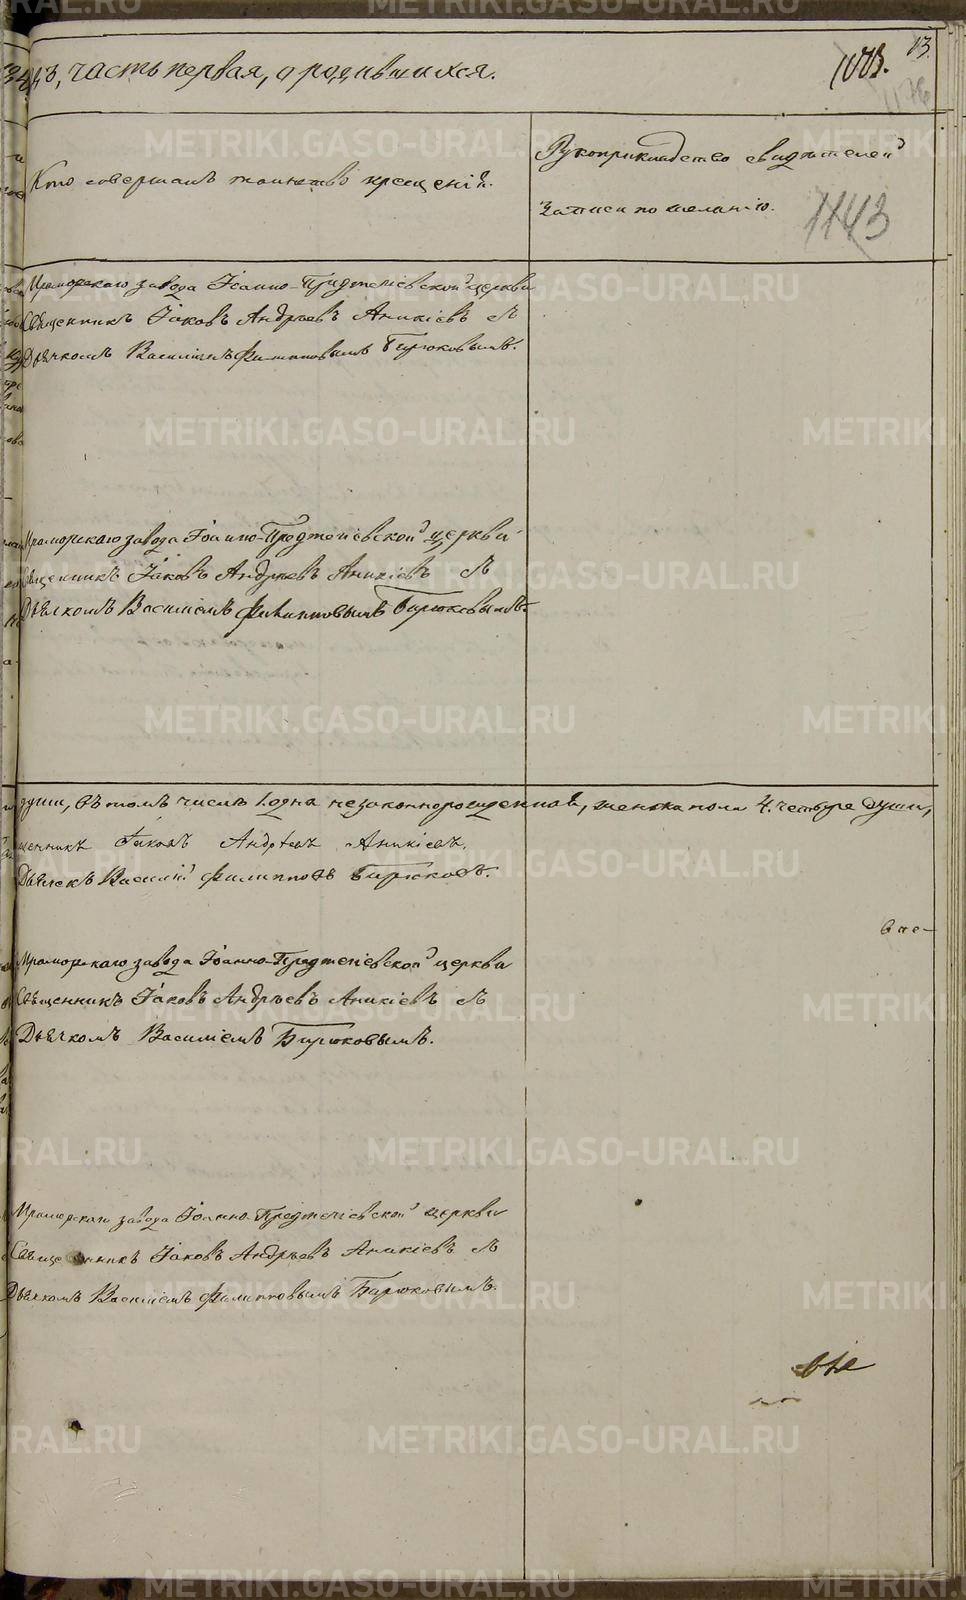 часть первая, о родившихся.
13.
1143
Кто совершалъ таинство крещенія.
Рукоприкладство свидѣтелей
записи по желанію.
Мраморскаго завода Іоанно-Предтечіевской церкви
Священникъ Іаковъ Андреевъ Аникіевъ съ
Дьячкомъ Василіемъ Филипповымъ Бирюковымъ.
Мраморскаго завода Іоанно-Предтечіевской церкви
Священникъ Іаковъ Андреевъ Аникіевъ съ
Дьячкомъ Василіемъ Филипповымъ Бирюковымъ
души, въ томъ числѣ 1. одна незаконнорожденная, женска пола 4. четыре души,
щенникъ Іаковъ Андреевъ Аникіевъ.
Дьячекъ Василій Филипповъ Бирюковъ.
Мраморскаго завода Іоанно-Предтечіевской церкви
Священникъ Іаковъ Андреевъ Аникіевъ съ
Дьячкомъ Василіемъ Бирюковымъ.
Мраморскаго завода Іоанно-Предтечіевской церкви
Священникъ Іаковъ Андреевъ Аникіевъ съ
Дьячкомъ Василіемъ Филипповымъ Бирюковымъ.
METRIKI.GASO-URAL.RU